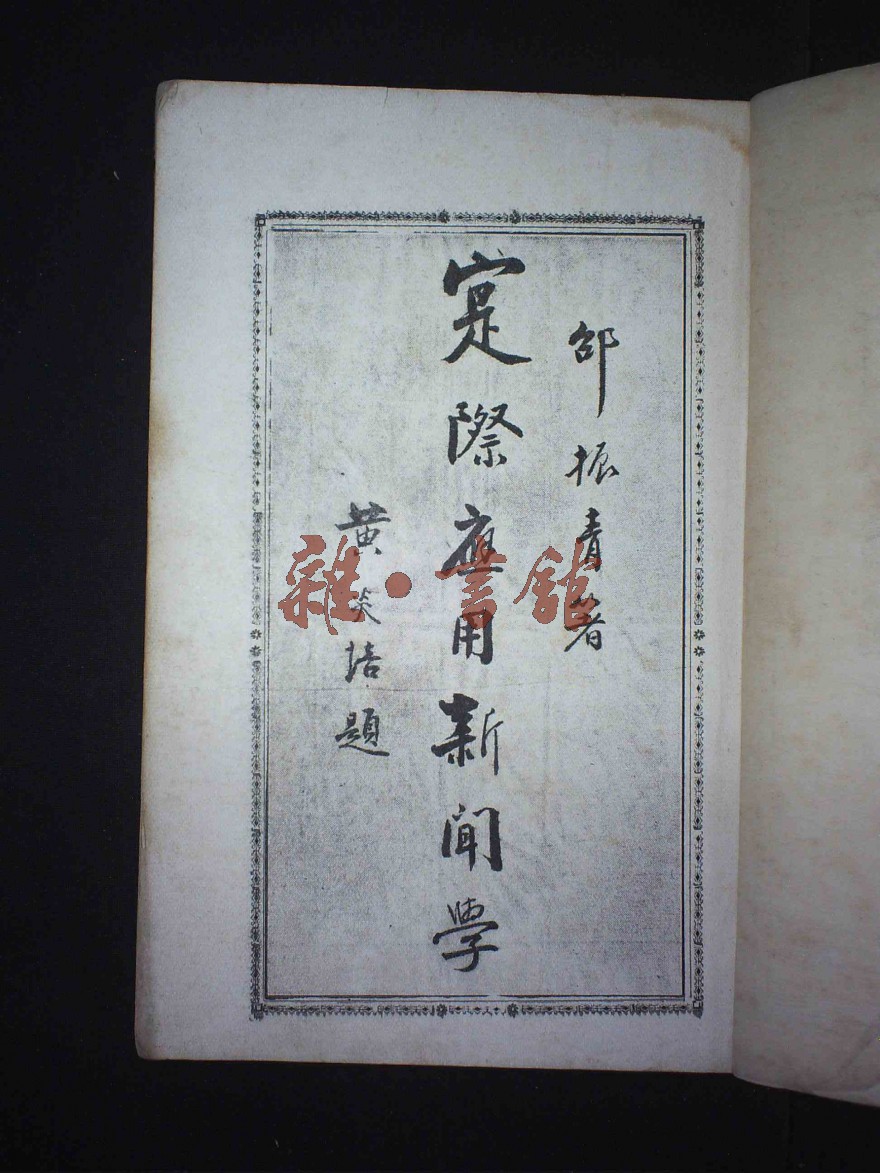 邵振青著
寔際應用新聞學
黄炎培題
雜·書館